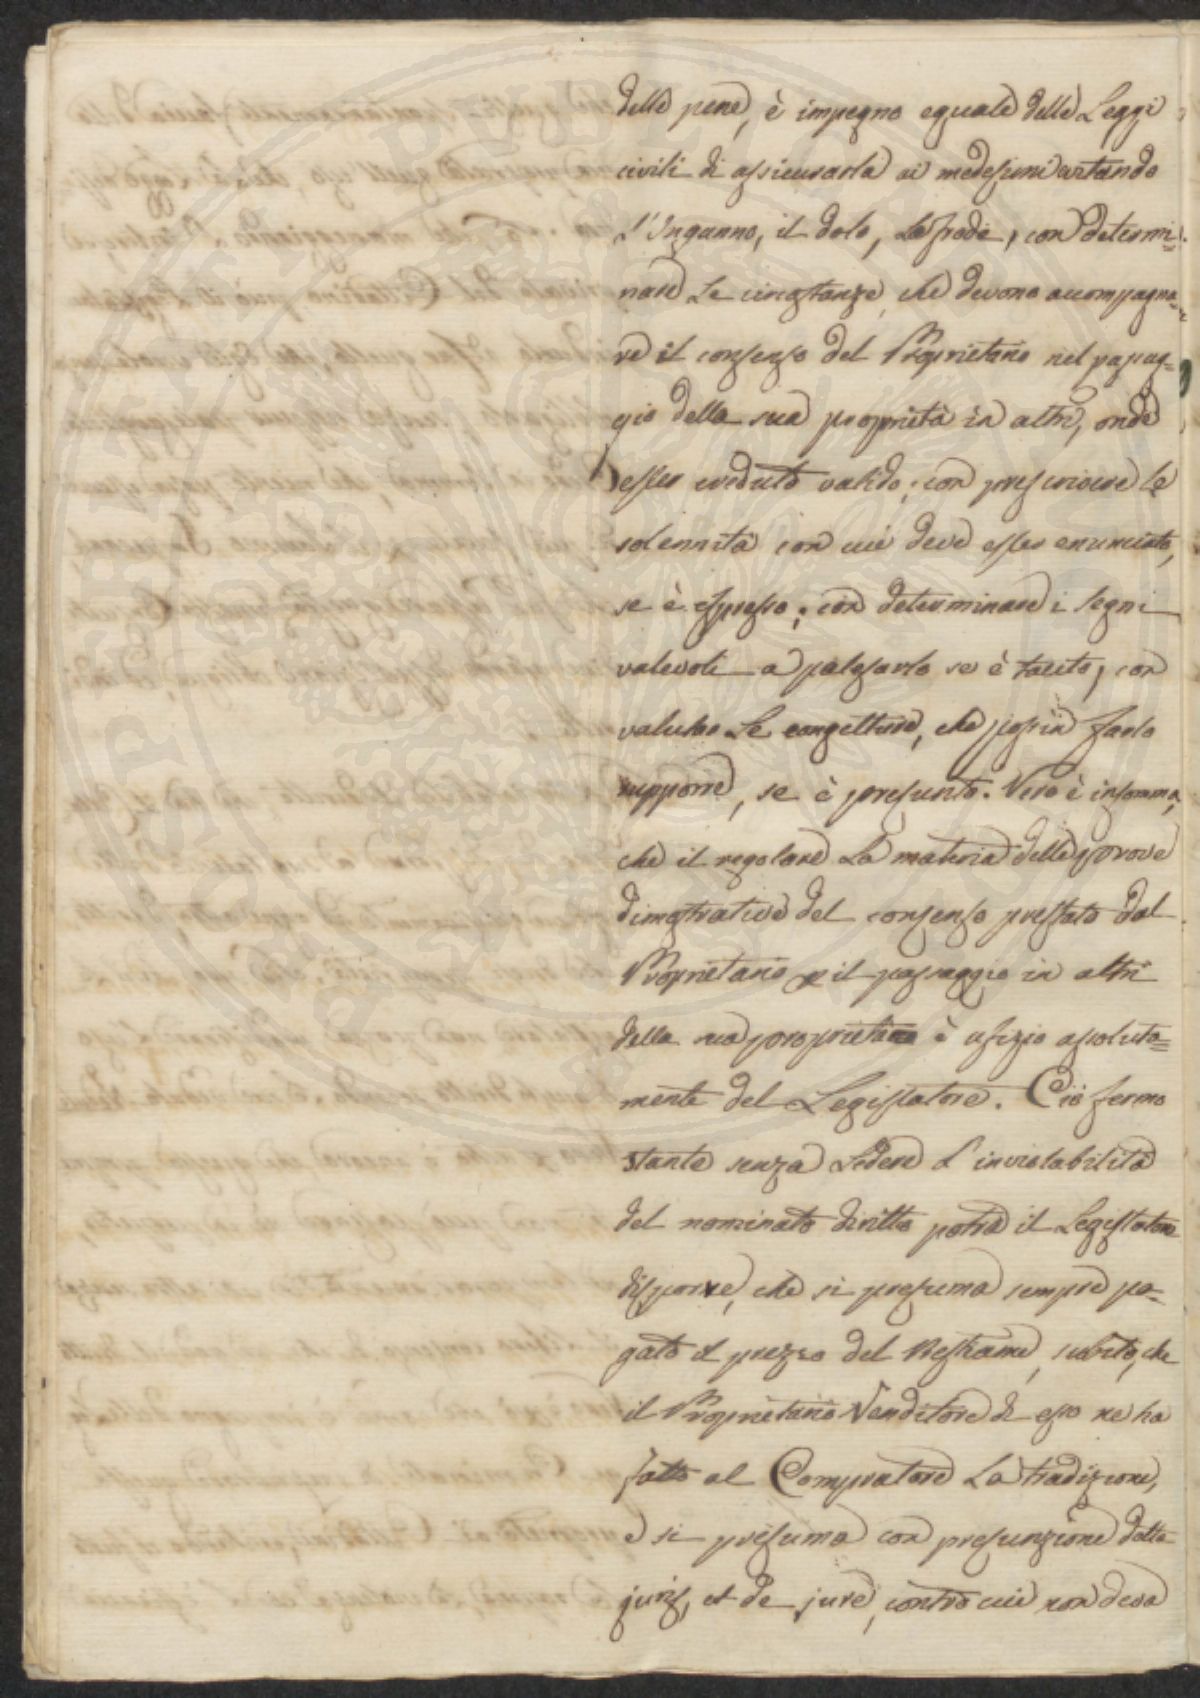 delle pene, è impegno eguale delle Leggi
civili di assicurarla ai medesimi evitando
l'Inganno, il dolo, La frode, con determi=
nare Le circostanze, che devono accompagna=
re il consenso del Proprietario nel passag=
gio della sua proprietà in altri, onde
esser creduto valido; con prescrivere le
solennità con cui deve esser enunciato,
se è espresso; con determinare i segni
valevoli a palesarlo se è tacito; con
valutare Le congetture, che possin farlo
supporre, se è presunto. Vero è insomma,
che il regolare La materia delle prove
dimostrative del consenso prestato dal
Proprietario p il passaggio in altri
della sua proprietà è ufizio assoluta=
mente del Legislatore. Ciò fermo
stante senza Ledere L'inviolabilità
del nominato diritto potrà il Legislatore
disporre, che si presuma sempre pa=
gato il prezzo del Bestiame, subito, che
il Proprietario Venditore di esso ne ha
fatto al Compratore La tradizione,
e si presuma con presunzione detta
juris, et de jure, contro cui non deva